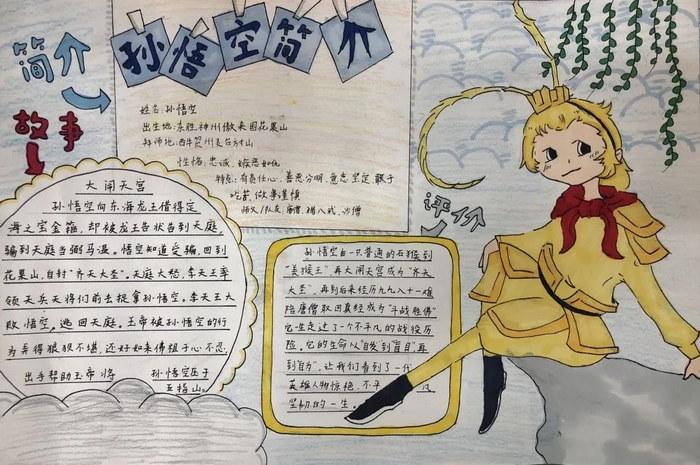 孙悟空简介
简介
姓名:孙悟空
出生地:东胜神州傲来国花果山
拜师地:西牛贺州灵台方寸山
性格:忠诚、嫉恶如仇
特点:有责任心、善恶分明、意志坚定、敢于
吃苦、做事谨慎
师父/队友:唐僧、猪八戒、沙僧
故事
大闹天宫
孙悟空向东海龙王借得定
海之宝金箍,却被龙王告状告到天庭,
骗到天庭当弼马温。悟空知道受骗,回到
花果山,自封"齐天大圣"。天庭大怒,李天王率
领天兵天将们前去捉拿孙悟空。李天王大
败悟空,逃回天庭。玉帝被孙悟空的行
为弄得狼狈不堪,还好如来佛祖于心不忍,
出手帮助玉帝将 孙悟空压于
五指山。
评价
孙悟空由一只普通的石猴到
"美猴王",再大闹天宫成为"齐天
大圣",再到后来经历九九八十一难
陪唐僧取回真经成为"斗战胜佛"
它一生走过了一个不平凡的战役历
险。它的生命从"自发到盲目",再
到自为",让我们看到了一代
英雄人物惊艳、不平 凡
坚韧的一生。